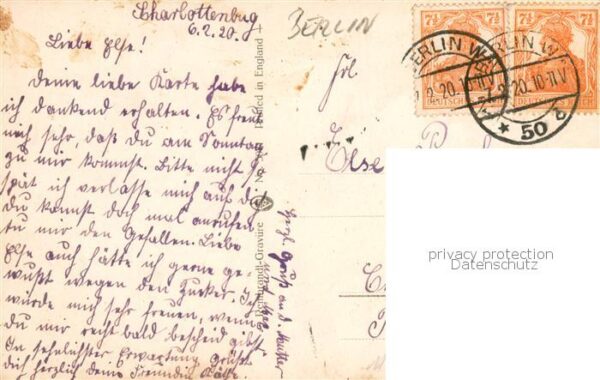 Charlottenbug
6.2.20.
BERLIN
Liebe Else!
Deine liebe Karte habe
ich dankend erhalten. Es freut
mich sehr, daß du am Sonntag
zu mir kommst. Bitte nicht
spät ich verlasse mich auf dich
Du kannst doch mal anrufen
tu mir den Gefallen. Liebe
Else auch hätte ich gerne ge-
wußt wegen den Zucker. Ich
würde mich sehr freuen, wenn
du mir recht bald bescheid gibst
In sehnlichster Erwartung Grüßt
dich herzlich deine Freundin Käthe.
Herzl. Gruß and. Mutter
Rembrandt-Gravüre
Printed in England
Frl.
Else
7½ 7½ 7½ 7½
BERLIN W
BERLIN W
2.20.10-11V
2.20.10-11V
DEUTSCHES REICH
* 50
privacy protection
Datenschutz